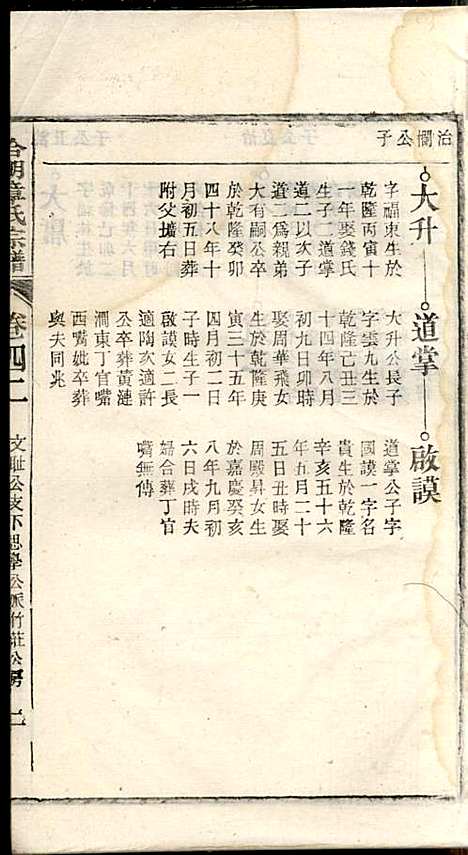 治憪公子
大升
字福東生於
乾隆丙寅十
一年娶錢氏
生子二道掌
道二以次子
道三為親弟
大有嗣公卒
於乾隆癸卯
四十八年十
月初五日葬
附父壙右
道掌
大升公長子
字雲九生於
乾隆己丑三
十四年八月
初九日卯時
娶周華飛女
生於乾隆庚
寅三十五年
四月初二日
子時生子一
啟謨女二長
適陶次適許
公卒葬黃漣
澗東丁官嘴
西嘴妣卒葬
與夫同兆
啟謨
道掌公子字
國謨一字名
貴生於乾隆
辛亥五十六
年五月二十
五日丑時娶
周殿昇女生
於嘉慶癸亥
八年九月初
六日戌時夫
婦合葬丁官
嘴無傳
章氏宗譜
卷四二
文耻公支下思學公派竹莊公房